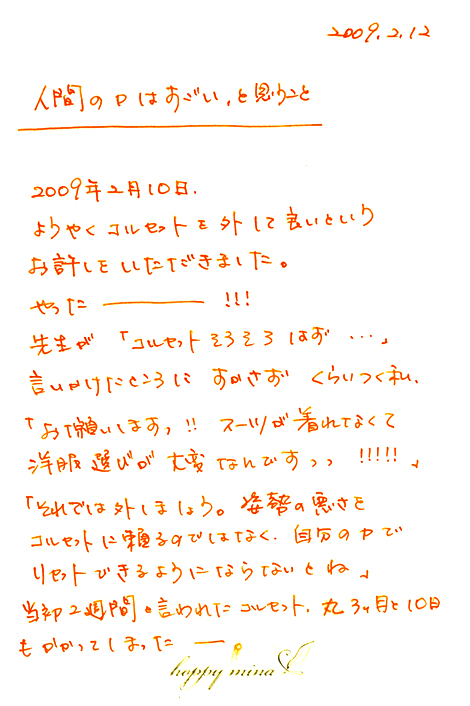 2009.2.12
人間の力はすごい、と思うこと
2009年2月10日.
ようやくコルセットを外して良いという
お許しをいただきました。
やった ――― !!!
先生が 「コルセットそろそろはず …」
言いかけたところに すかさず くらいつく私.
「お願いしますっ!! スーツが着れてなくて
洋服選びが 大変なんですっっ !!!!!」
「それでは外しましょう。姿勢の悪さを
コルセットに頼るのではなく、自分の力で
リセットできるようにならないとね」
当初2週間と言われたコルセット. 丸3ヶ月と10日
もかかってしまった ―。
happy mina